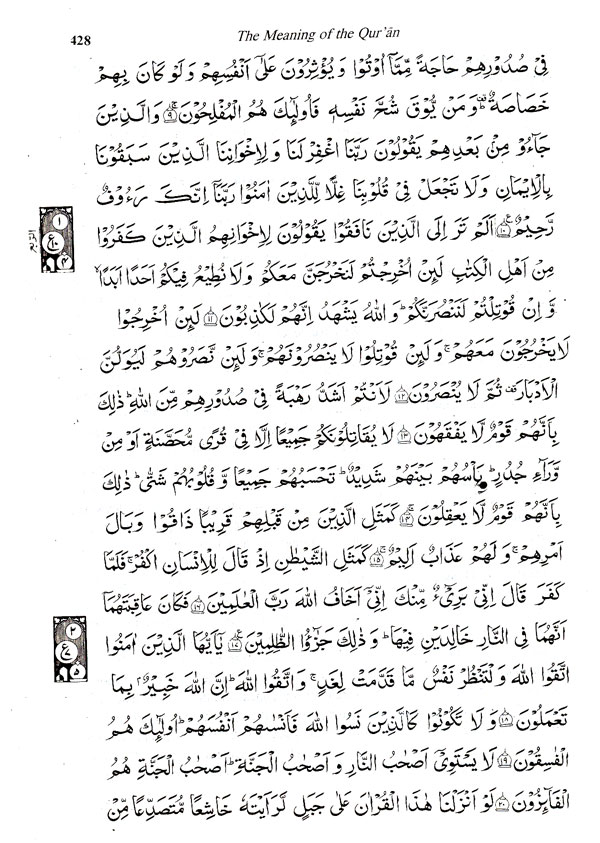 428
The Meaning of the Qur'ān
فِىْ صُدُوْرِهِمْ حَاجَةً مِّمَّاۤ اُوْتُوْا وَيُؤْثِرُوْنَ عَلٰٓى اَنْفُسِهِمْ وَلَوْ كَانَ بِهِمْ
خَصَاصَةٌ ؕ وَمَنْ يُّوْقَ شُحَّ نَفْسِهٖ فَاُولٰٓئِكَ هُمُ الْمُفْلِحُوْنَ ۝٩ وَالَّذِيْنَ
جَآءُوْ مِنْۢ بَعْدِهِمْ يَقُوْلُوْنَ رَبَّنَا اغْفِرْ لَنَا وَلِاِخْوَانِنَا الَّذِيْنَ سَبَقُوْنَا
بِالْاِيْمَانِ وَلَا تَجْعَلْ فِىْ قُلُوْبِنَا غِلًّا لِّلَّذِيْنَ اٰمَنُوْا رَبَّنَاۤ اِنَّكَ رَءُوْفٌ
رَّحِيْمٌ ۝١٠ اَلَمْ تَرَ اِلَى الَّذِيْنَ نَافَقُوْا يَقُوْلُوْنَ لِاِخْوَانِهِمُ الَّذِيْنَ كَفَرُوْا
مِنْ اَهْلِ الْكِتٰبِ لَئِنْ اُخْرِجْتُمْ لَنَخْرُجَنَّ مَعَكُمْ وَلَا نُطِيْعُ فِيْكُمْ اَحَدًا اَبَدًا ۙ
وَّاِنْ قُوْتِلْتُمْ لَنَنْصُرَنَّكُمْ ؕ وَاللّٰهُ يَشْهَدُ اِنَّهُمْ لَكٰذِبُوْنَ ۝١١ لَئِنْ اُخْرِجُوْا
لَا يَخْرُجُوْنَ مَعَهُمْ ۚ وَلَئِنْ قُوْتِلُوْا لَا يَنْصُرُوْنَهُمْ ۚ وَلَئِنْ نَّصَرُوْهُمْ لَيُوَلُّنَّ
الْاَدْبَارَ ۫ ثُمَّ لَا يُنْصَرُوْنَ ۝١٢ لَاَنْتُمْ اَشَدُّ رَهْبَةً فِىْ صُدُوْرِهِمْ مِّنَ اللّٰهِ ؕ ذٰلِكَ
بِاَنَّهُمْ قَوْمٌ لَّا يَفْقَهُوْنَ ۝١٣ لَا يُقَاتِلُوْنَكُمْ جَمِيْعًا اِلَّا فِىْ قُرًى مُّحَصَّنَةٍ اَوْ مِنْ
وَّرَآءِ جُدُرٍ ؕ بَاْسُهُمْ بَيْنَهُمْ شَدِيْدٌ ؕ تَحْسَبُهُمْ جَمِيْعًا وَّقُلُوْبُهُمْ شَتّٰى ؕ ذٰلِكَ
بِاَنَّهُمْ قَوْمٌ لَّا يَعْقِلُوْنَ ۝١٤ كَمَثَلِ الَّذِيْنَ مِنْ قَبْلِهِمْ قَرِيْبًا ذَاقُوْا وَبَالَ
اَمْرِهِمْ ۚ وَلَهُمْ عَذَابٌ اَلِيْمٌ ۝١٥ كَمَثَلِ الشَّيْطٰنِ اِذْ قَالَ لِلْاِنْسَانِ اكْفُرْ ۚ فَلَمَّا
كَفَرَ قَالَ اِنِّىْ بَرِىْٓءٌ مِّنْكَ اِنِّىْۤ اَخَافُ اللّٰهَ رَبَّ الْعٰلَمِيْنَ ۝١٦ فَكَانَ عَاقِبَتَهُمَاۤ
اَنَّهُمَا فِى النَّارِ خَالِدَيْنِ فِيْهَا ؕ وَذٰلِكَ جَزٰٓؤُا الظّٰلِمِيْنَ ۝١٧ يٰۤاَيُّهَا الَّذِيْنَ اٰمَنُوا
اتَّقُوا اللّٰهَ وَلْتَنْظُرْ نَفْسٌ مَّا قَدَّمَتْ لِغَدٍ ۚ وَاتَّقُوا اللّٰهَ ؕ اِنَّ اللّٰهَ خَبِيْرٌۢ بِمَا
تَعْمَلُوْنَ ۝١٨ وَلَا تَكُوْنُوْا كَالَّذِيْنَ نَسُوا اللّٰهَ فَاَنْسٰىهُمْ اَنْفُسَهُمْ ؕ اُولٰٓئِكَ هُمُ
الْفٰسِقُوْنَ ۝١٩ لَا يَسْتَوِىْۤ اَصْحٰبُ النَّارِ وَاَصْحٰبُ الْجَنَّةِ ؕ اَصْحٰبُ الْجَنَّةِ هُمُ
الْفَآئِزُوْنَ ۝٢٠ لَوْ اَنْزَلْنَا هٰذَا الْقُرْاٰنَ عَلٰى جَبَلٍ لَّرَاَيْتَهٗ خَاشِعًا مُّتَصَدِّعًا مِّنْ